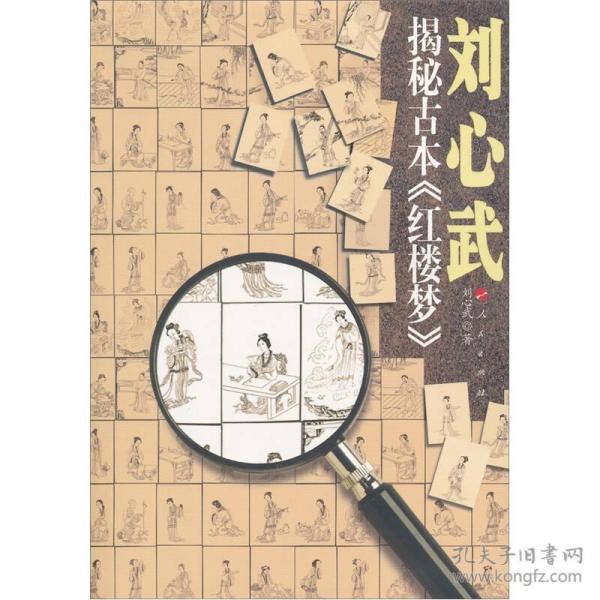 刘心武
揭秘古本《红楼梦》
刘心武◎著
人民出版社
孔夫子旧书网
www.kongfz.com